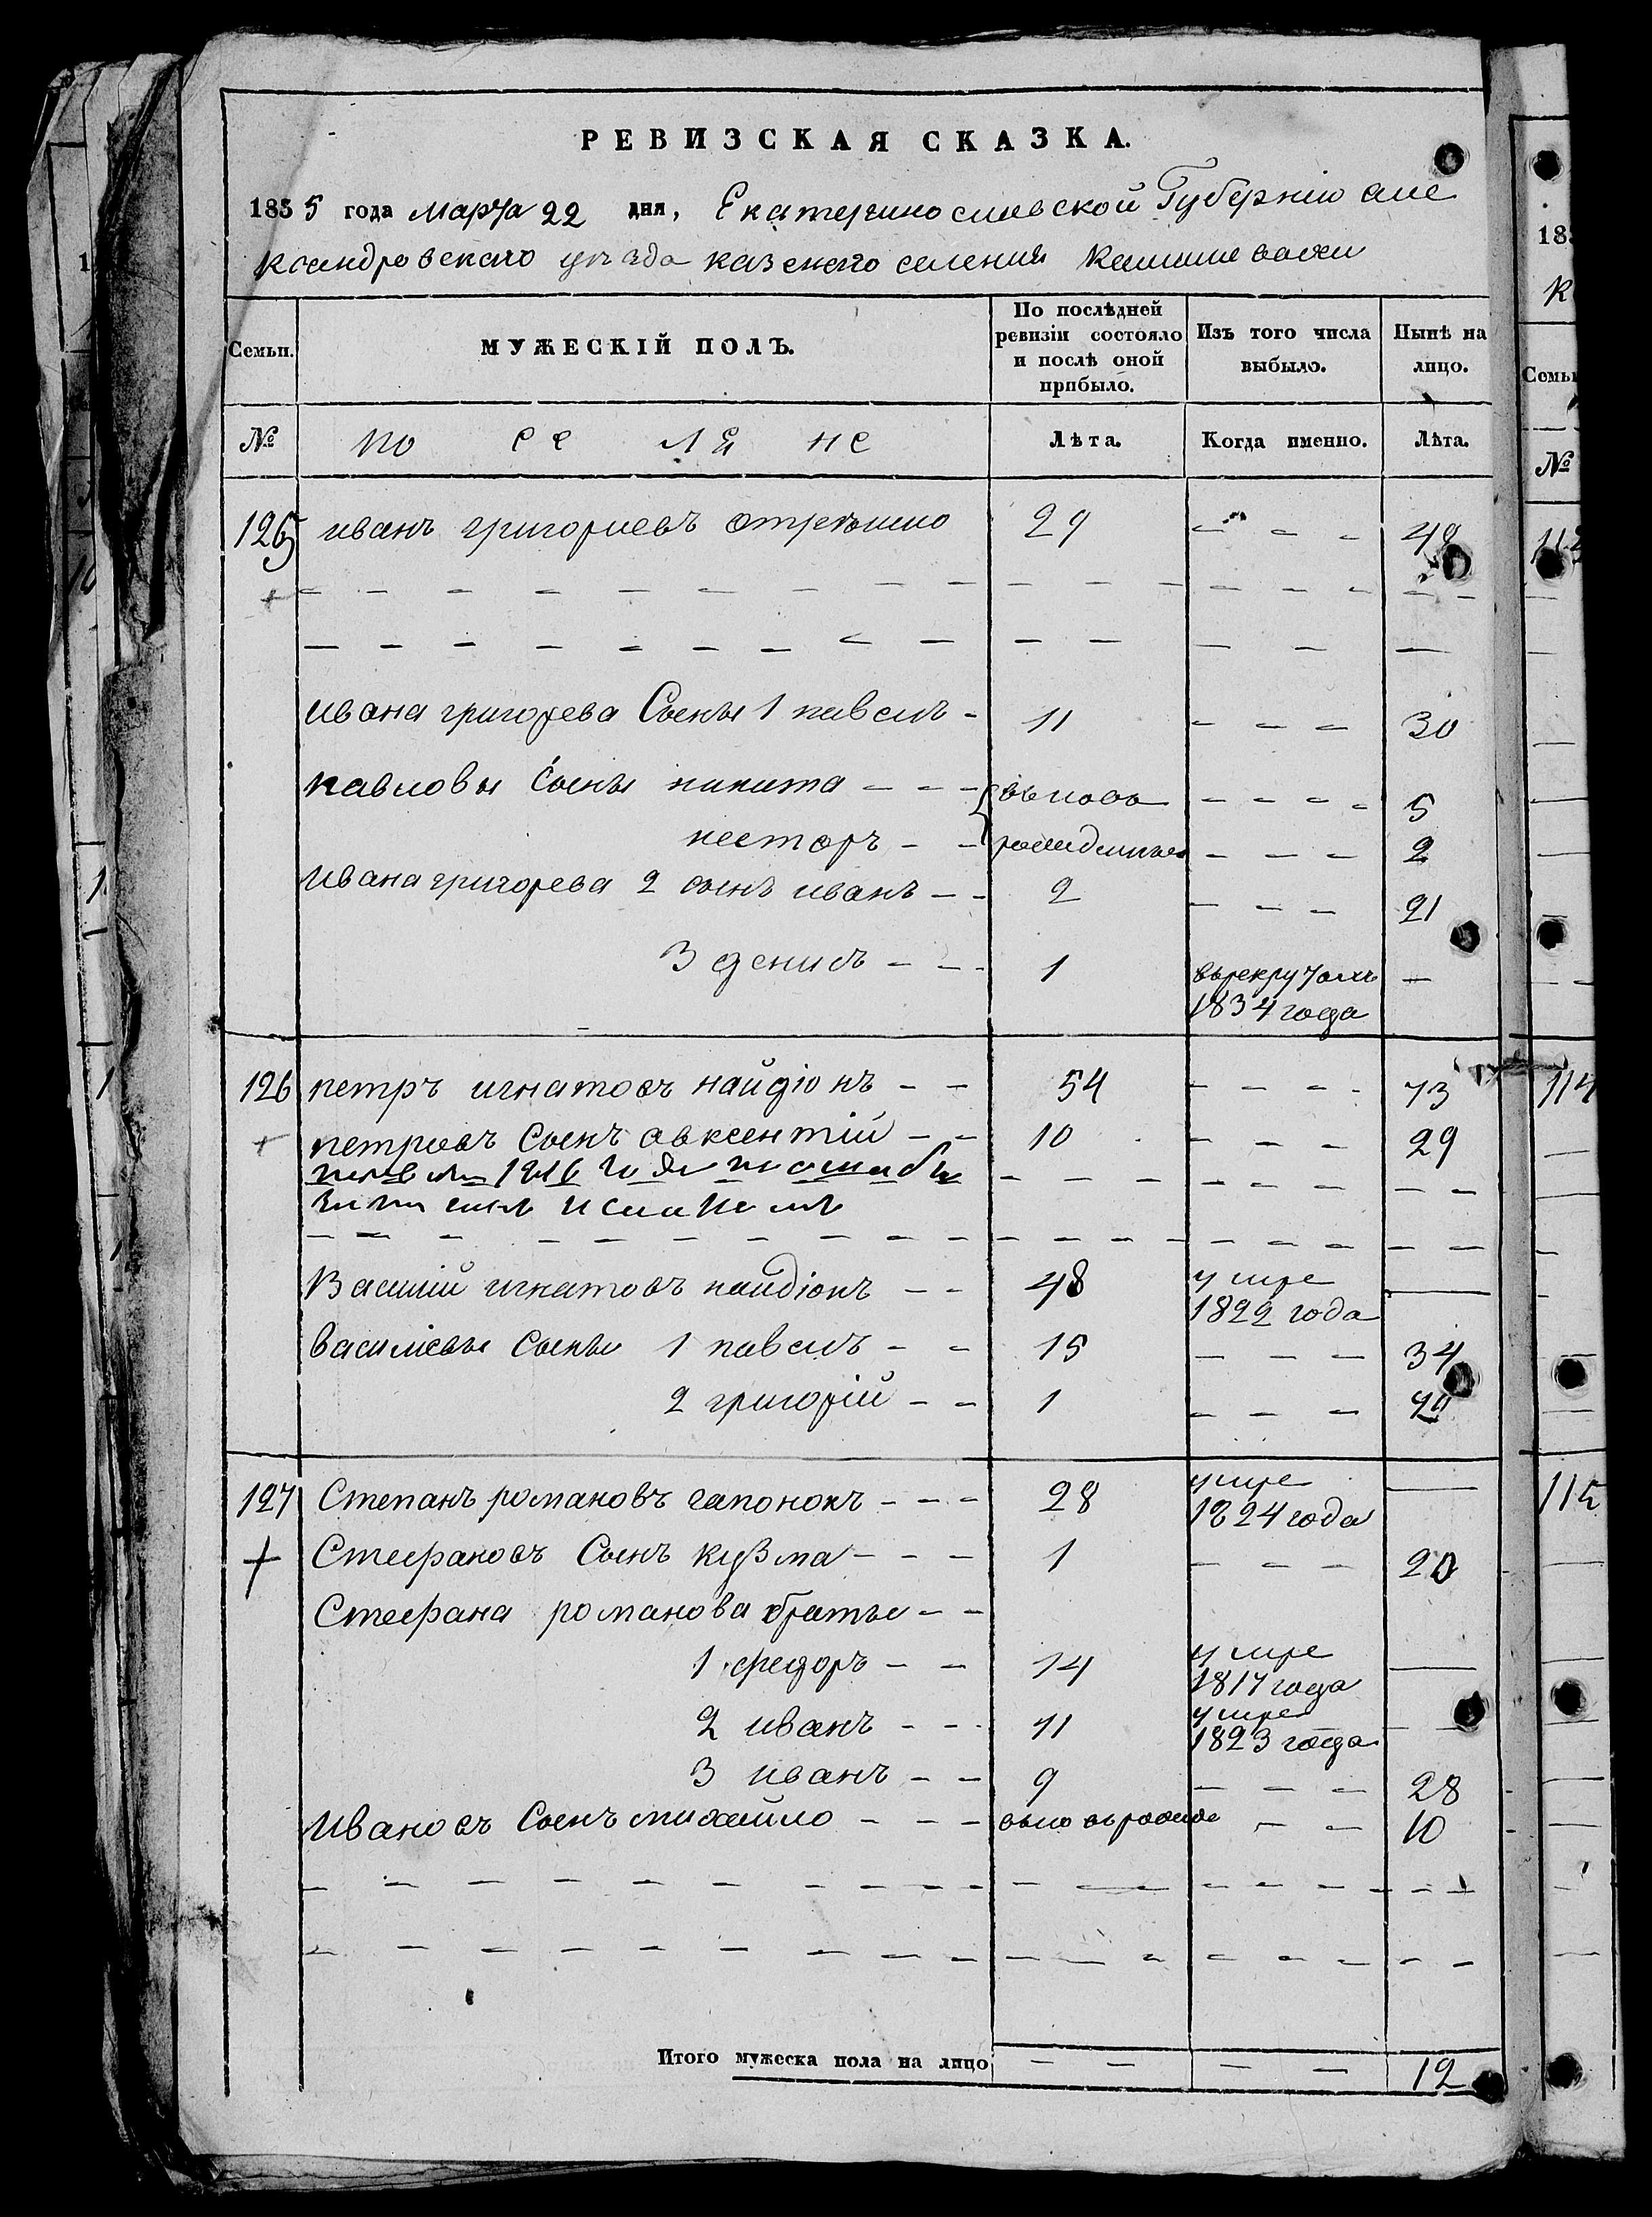 РЕВИЗСКАЯ СКАЗКА.
1835 года Марта 22 дня, Екатеринославской Губерніи але
ксандровского уъзда казенного селения
Семьи. МУЖЕСКІЙ ПОЛЪ. По послѣдней ревизіи состояло и послѣ оной прибыло. Изъ того числа выбыло. Нынѣ на лицо.
№ По се ля не Лѣта. Когда именно. Лѣта.
125 иванъ григориевъ 29 - - - 48
ивана григорева Сыны 1 павелъ - 11 - - - 30
павловы Сыны никита - - - вьновь - - - - 5
несторъ - - рожденные - - - 2
ивана григорева 2 сынъ иванъ - - 2 - - - 21
3 денисъ - - - 1 вьрекрутахъ —
1834 года
126 петръ игнатовъ найдіонъ - - 54 - - - - 73
петровъ Сынъ авксентій - - 10 - - - 29
1816 года
Василій игнатовъ найдіонъ - - 48 умре
1822 года
василіевы Сыны 1 павелъ - - 15 - - - 34
2 григорій - - 1 - - -
127 Степанъ романовъ гапонокъ - - - 28 умре
1824 года
Стефановъ Сынъ кузма - - - 1 - - - 20
Стефана романова братья - -
1 федоръ - - 14 умре
1817 года
2 иванъ - - - 11 умре
1823 года
3 иванъ - - 9 - - - 28
Ивановъ Сынъ михайло - - - вьновьрожде - - 10
Итого мужеска пола на лицо - - - - 12
18
К
Семьи
№
113
114
115